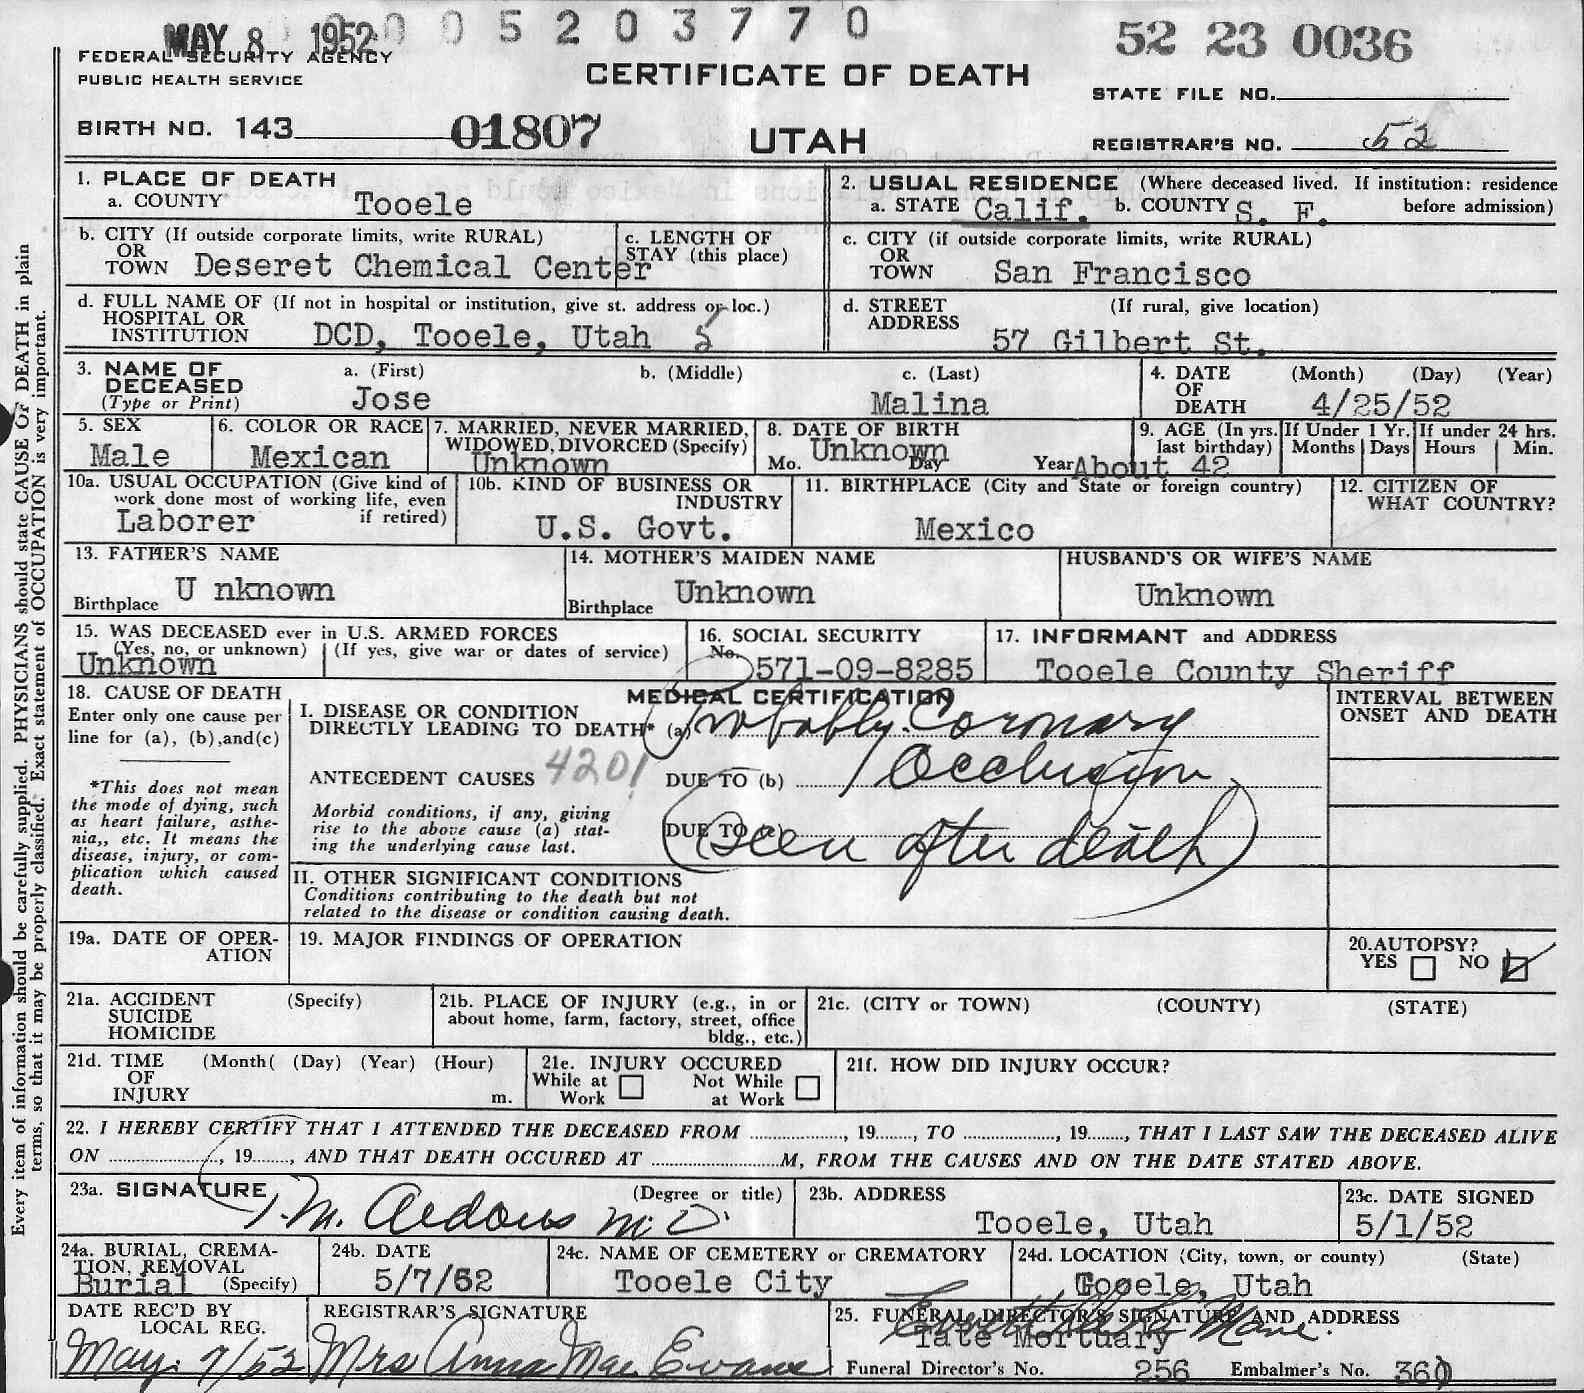 MAY 8 1952 0 0 5 2 0 3 7 7 0
52 23 0036
FEDERAL SECURITY AGENCY
PUBLIC HEALTH SERVICE
CERTIFICATE OF DEATH
STATE FILE NO.
BIRTH NO. 143 01807
UTAH
REGISTRAR'S NO. 52
1. PLACE OF DEATH
a. COUNTY Tooele
2. USUAL RESIDENCE (Where deceased lived. If institution: residence before admission)
a. STATE Calif. b. COUNTY S. F.
b. CITY (If outside corporate limits, write RURAL)
OR
TOWN Deseret Chemical Center
c. LENGTH OF
STAY (this place)
c. CITY (if outside corporate limits, write RURAL)
OR
TOWN San Francisco
d. FULL NAME OF (If not in hospital or institution, give st. address or loc.)
HOSPITAL OR
INSTITUTION DCD, Tooele, Utah 5
d. STREET (If rural, give location)
ADDRESS
57 Gilbert St.
3. NAME OF
DECEASED
(Type or Print)
a. (First) b. (Middle) c. (Last)
Jose Malina
4. DATE (Month) (Day) (Year)
OF
DEATH 4/25/52
5. SEX
Male
6. COLOR OR RACE
Mexican
7. MARRIED, NEVER MARRIED,
WIDOWED, DIVORCED (Specify)
Unknown
8. DATE OF BIRTH
Unknown
Mo. Day Year
9. AGE (In yrs. last birthday)
About 42
If Under 1 Yr.
Months Days
If under 24 hrs.
Hours Min.
10a. USUAL OCCUPATION (Give kind of
work done most of working life, even
if retired)
Laborer
10b. KIND OF BUSINESS OR
INDUSTRY
U.S. Govt.
11. BIRTHPLACE (City and State or foreign country)
Mexico
12. CITIZEN OF
WHAT COUNTRY?
13. FATHER'S NAME
U nknown
Birthplace
14. MOTHER'S MAIDEN NAME
Unknown
Birthplace
HUSBAND'S OR WIFE'S NAME
Unknown
15. WAS DECEASED ever in U.S. ARMED FORCES
(Yes, no, or unknown) (If yes, give war or dates of service)
Unknown
16. SOCIAL SECURITY
No. 571-09-8285
17. INFORMANT and ADDRESS
Tooele County Sheriff
18. CAUSE OF DEATH
Enter only one cause per
line for (a), (b), and (c)
*This does not mean
the mode of dying, such
as heart failure, asthe-
nia,, etc. It means the
disease, injury, or com-
plication which caused
death.
MEDICAL CERTIFICATION
I. DISEASE OR CONDITION
DIRECTLY LEADING TO DEATH* (a) Probably Coronary
ANTECEDENT CAUSES 4201 DUE TO (b) Occlusion
Morbid conditions, if any, giving
rise to the above cause (a) stat-
ing the underlying cause last.
DUE TO (c) (Seen after death)
II. OTHER SIGNIFICANT CONDITIONS
Conditions contributing to the death but not
related to the disease or condition causing death.
INTERVAL BETWEEN
ONSET AND DEATH
19a. DATE OF OPER-
ATION
19. MAJOR FINDINGS OF OPERATION
20. AUTOPSY?
YES NO
21a. ACCIDENT (Specify)
SUICIDE
HOMICIDE
21b. PLACE OF INJURY (e.g., in or
about home, farm, factory, street, office
bldg., etc.)
21c. (CITY or TOWN) (COUNTY) (STATE)
21d. TIME (Month( (Day) (Year) (Hour)
OF
INJURY m.
21e. INJURY OCCURED
While at Work Not While at Work
21f. HOW DID INJURY OCCUR?
22. I HEREBY CERTIFY THAT I ATTENDED THE DECEASED FROM ................, 19......., TO ................, 19......., THAT I LAST SAW THE DECEASED ALIVE
ON ................, 19......., AND THAT DEATH OCCURED AT ................M, FROM THE CAUSES AND ON THE DATE STATED ABOVE.
23a. SIGNATURE (Degree or title)
J. M. Aldous M.D.
23b. ADDRESS
Tooele, Utah
23c. DATE SIGNED
5/1/52
24a. BURIAL, CREMA-
TION, REMOVAL
Burial (Specify)
24b. DATE
5/7/52
24c. NAME OF CEMETERY or CREMATORY
Tooele City
24d. LOCATION (City, town, or county) (State)
Tooele, Utah
DATE REC'D BY
LOCAL REG.
May. 7/52
REGISTRAR'S SIGNATURE
Mrs Anna Mae Evans
25. FUNERAL DIRECTOR'S SIGNATURE AND ADDRESS
Tate Mortuary
Funeral Director's No. 256 Embalmer's No. 360
Every item of information should be carefully supplied. PHYSICIANS should state CAUSE OF DEATH in plain
terms, so that it may be properly classified. Exact statement of OCCUPATION is very important.